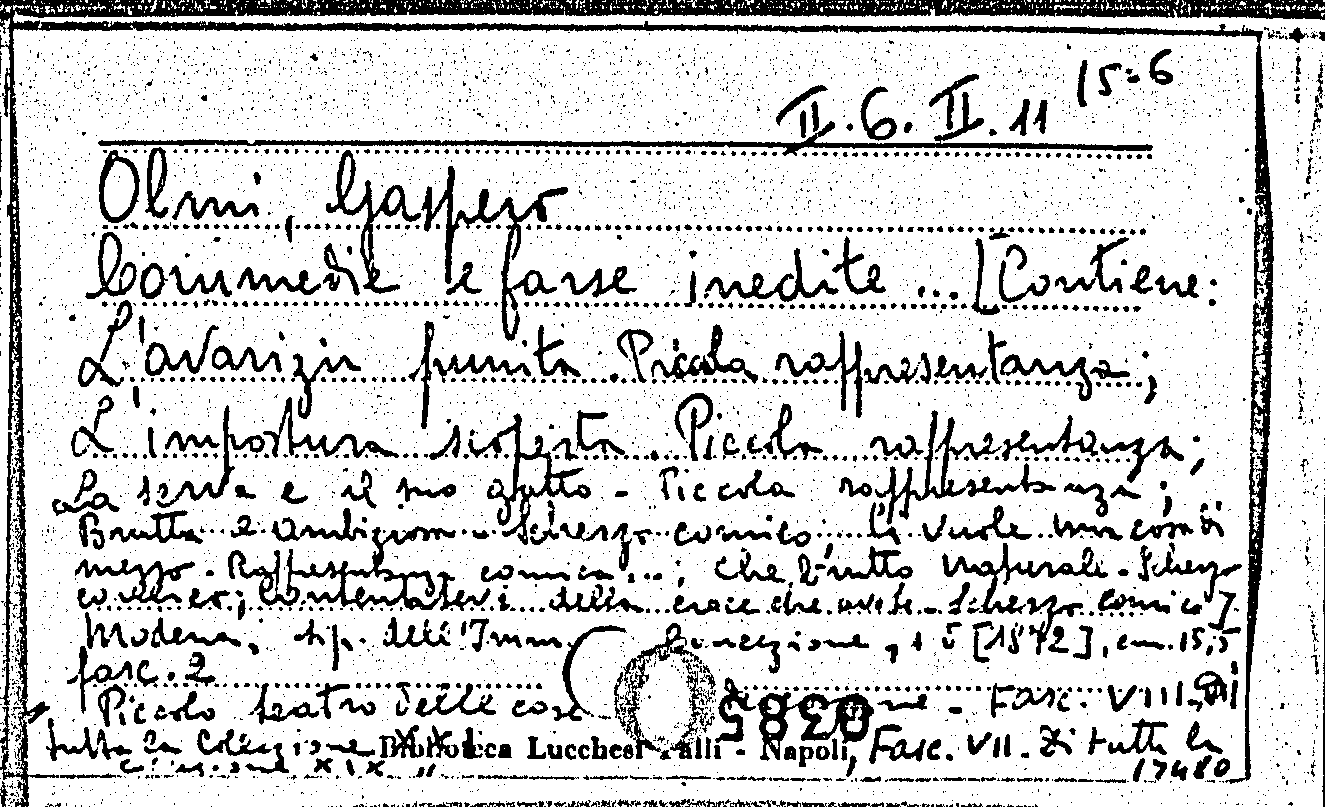 15=6
II.6.II.11
Olmi, Gaspero
Commedie e farse inedite ... [Contiene:
L'avarizia punita. Piccola rappresentanza;
L'impostura scoperta. Piccola rappresentanza;
La serva e il suo gatto - Piccola rappresentanza;
Brutta e ambiziosa - Scherzo comico; Ci vuole un con di
mezzo. Rappresentanza comica...; Che brutto naturale - Scherzo
comico; Contentatevi della croce che avete - Scherzo comico].
Modena, tip. dell'Imm. Concezione, [1872], cm. 15,5
fasc. 2
Piccolo teatro delle case - Fasc. VIII. Di
tutta la Collezione Fasc. VII. Di tutta la
Biblioteca Lucchesi Palli - Napoli
XIX
17480